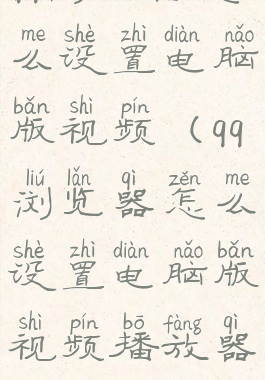 me shè zhì diàn nǎo
么设置电脑
bǎn shì pín
版视频 (qq
liú lǎn qì zěn me
浏览器怎么
shè zhì diàn nǎo bǎn
设置电脑版
shì pín bō fàng qì
视频播放器